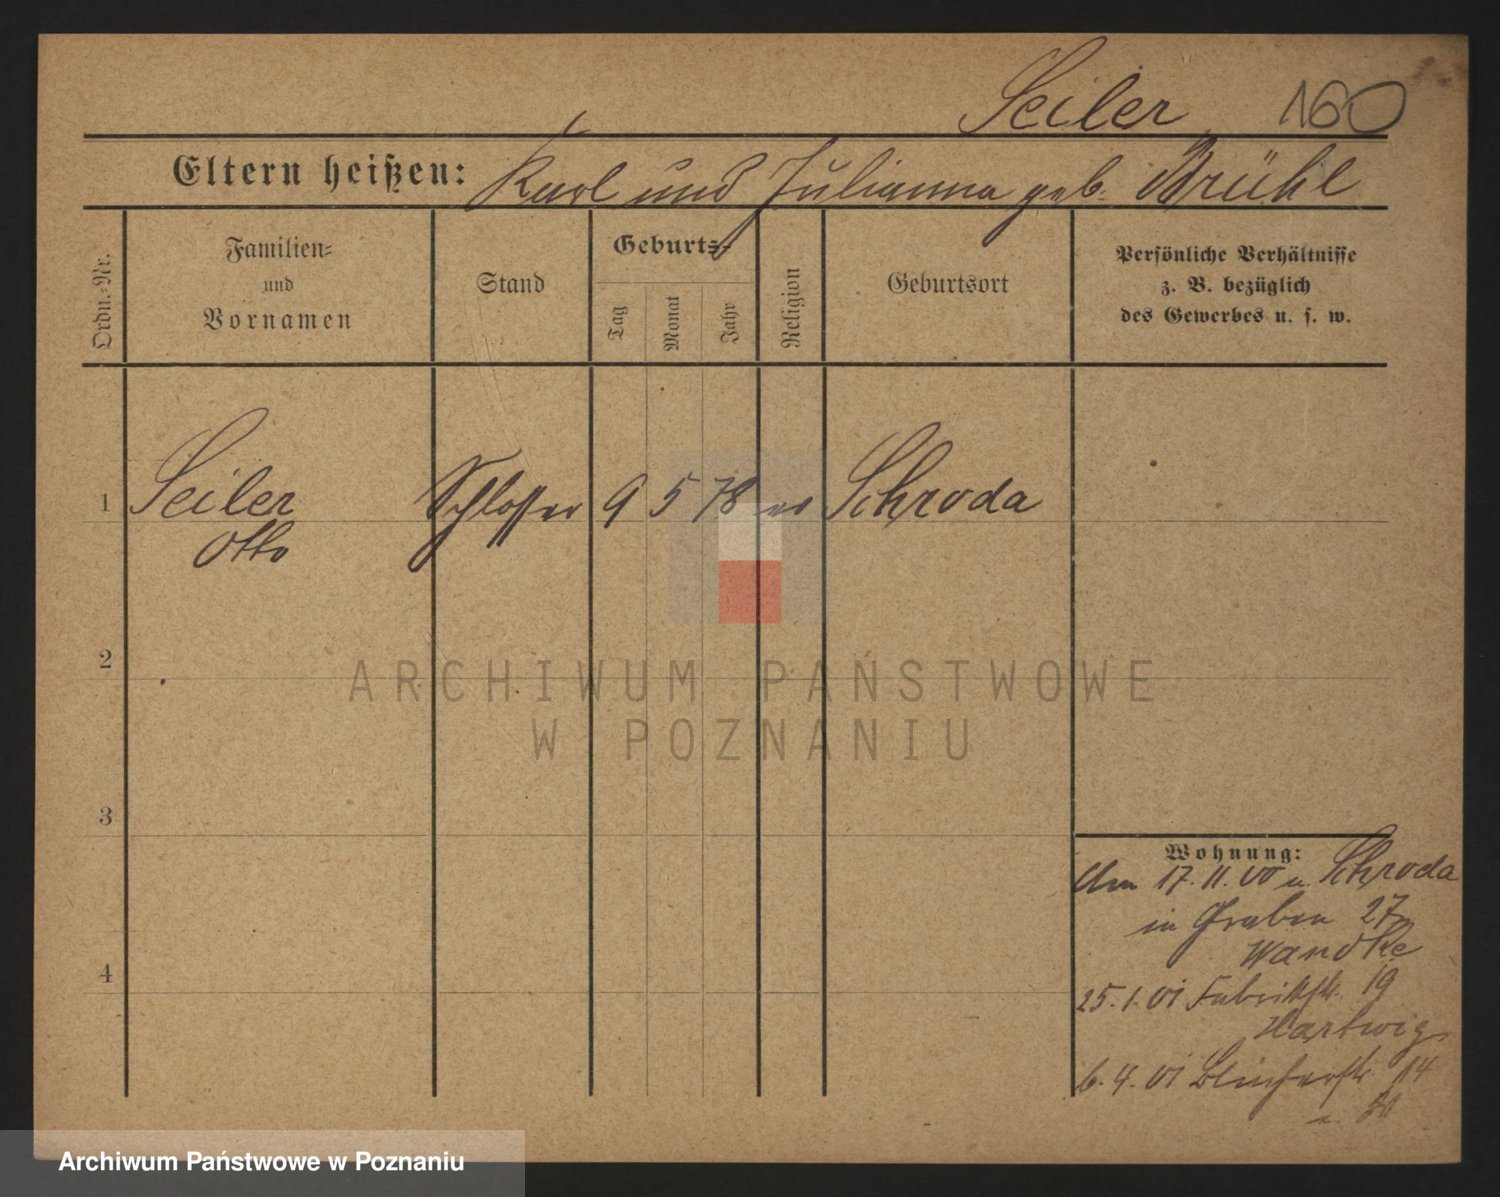 Seiler 160
Eltern heißen: Karl und Julianna geb. Brühl
Ordn.-Nr.
Familien-
und
Vornamen
Stand
Geburts-
Tag
Monat
Jahr
Religion
Geburtsort
Persönliche Verhältnisse
z. B. bezüglich
des Gewerbes u. s. w.
1 Seiler Schlosser 9 5 78 ev Schroda
Otto
2
3
4
ARCHIWUM PAŃSTWOWE
W POZNANIU
Wohnung:
Am 17. 11. 00 v. Schroda
in Graben 27
Wandke
25. 1. 01 Fabrikstr. 19
Hartwig
6. 4. 01 Blücherstr. 14
Archiwum Państwowe w Poznaniu